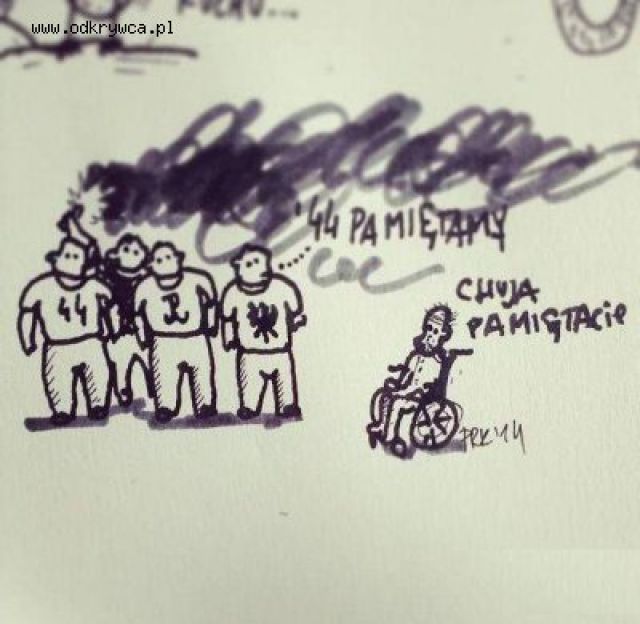 KUCHU...
www.odkrywca.pl
'44 PAMIĘTAMY
44
CHUJA
PAMIĘTACIE
PRK'14